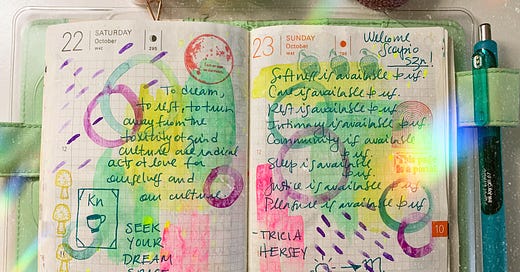 22 SATURDAY
October
295
To dream,
to rest, to turn
away from the
toxicity of grind
culture are radical
acts of love for
ourselves and
our culture.
12
Kn
SEEK
YOUR
DREAM
SPACE
23 SUNDAY
October
296
Welcome
Scorpio
SZN!
Softness is available to us.
Care is available to us.
Rest is available to us.
Intimacy is available to us.
Community is available to us.
Sleep is available to us.
Justice is available to us.
Pleasure is available to us.
-TRICIA
HERSEY
10